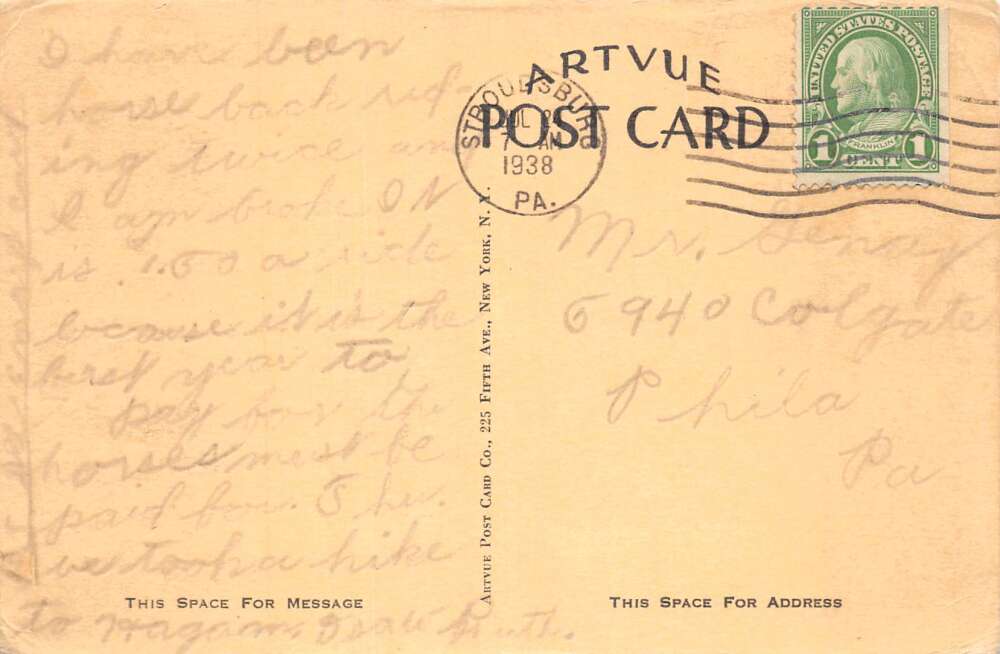 I have been
horse back rid-
ing twice and
I am broke. It
is 1.50 a ride
because it is the
first year to
pay for the
horses must be
paid for. Thu.
we took a hike
to
ARTVUE
POST CARD
STROUDSBURG
JUL
7 AM
1938
PA.
UNITED STATES POSTAGE
FRANKLIN
1 CENT 1
Mr.
5940 Colgate
Phila
Pa
ARTVUE POST CARD CO., 225 FIFTH AVE., NEW YORK, N. Y.
THIS SPACE FOR MESSAGE
THIS SPACE FOR ADDRESS